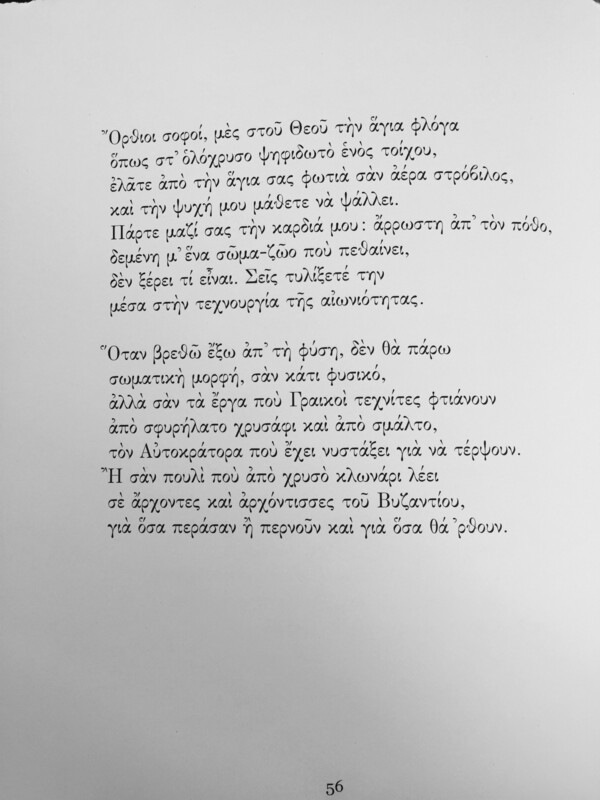 Ὄρθιοι σοφοί, μὲς στοῦ Θεοῦ τὴν ἅγια φλόγα
ὅπως στ' ὁλόχρυσο ψηφιδωτὸ ἑνὸς τοίχου,
ἐλᾶτε ἀπὸ τὴν ἅγια σας φωτιὰ σὰν ἀέρα στρόβιλος,
καὶ τὴν ψυχή μου μάθετε νὰ ψάλλει.
Πάρτε μαζί σας τὴν καρδιά μου: ἄρρωστη ἀπ' τὸν πόθο,
δεμένη μ' ἕνα σῶμα-ζῶο ποὺ πεθαίνει,
δὲν ξέρει τί εἶναι. Σεῖς τυλίξετέ την
μέσα στὴν τεχνουργία τῆς αἰωνιότητας.

Ὅταν βρεθῶ ἔξω ἀπ' τὴ φύση, δὲν θὰ πάρω
σωματικὴ μορφή, σὰν κάτι φυσικό,
ἀλλὰ σὰν τὰ ἔργα ποὺ Γραικοὶ τεχνίτες φτιάνουν
ἀπὸ σφυρήλατο χρυσάφι καὶ ἀπὸ σμάλτο,
τὸν Αὐτοκράτορα ποὺ ἔχει νυστάξει γιὰ νὰ τέρψουν.
Ἢ σὰν πουλὶ ποὺ ἀπὸ χρυσὸ κλωνάρι λέει
σὲ ἄρχοντες καὶ ἀρχόντισσες τοῦ Βυζαντίου,
γιὰ ὅσα περάσαν ἢ περνοῦν καὶ γιὰ ὅσα θά 'ρθουν.

56